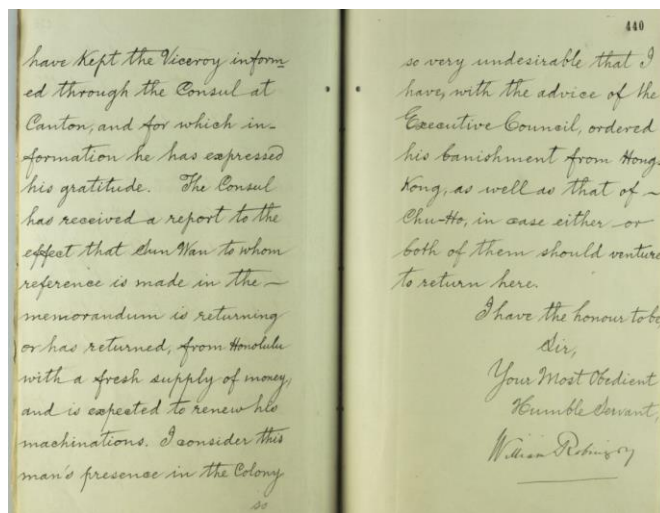 have kept the Viceroy inform
ed through the Consul at
Canton, and for which in-
formation he has expressed
his gratitude. The Consul
has received a report to the
effect that Sun Wan to whom
reference is made in the —
memorandum is returning
or has returned, from Honolulu
with a fresh supply of money,
and is expected to renew his
machinations. I consider this
man's presence in the Colony
so
440
so very undesirable that I
have, with the advice of the
Executive Council, ordered
his banishment from Hong-
Kong, as well as that of —
Chu-Ho, in case either or
both of them should venture
to return here.
I have the honour to be
Sir,
Your Most Obedient
Humble Servant,
William Robinson